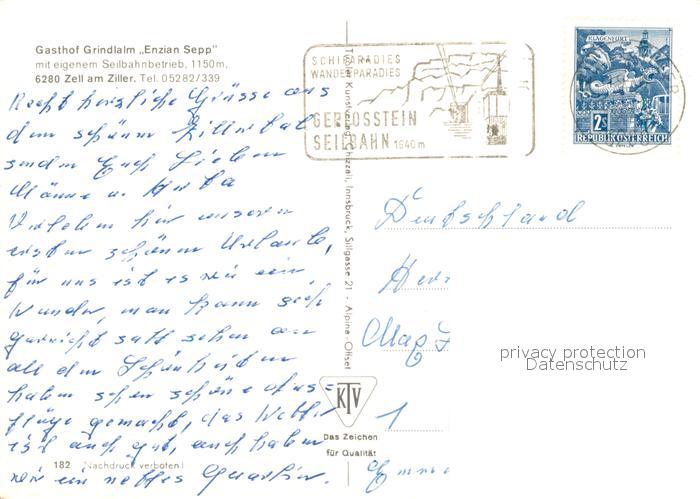 Gasthof Grindlalm „Enzian Sepp"
mit eigenem Seilbahnbetrieb, 1150m,
6280 Zell am Ziller. Tel. 05282/339
Recht herzliche Grüsse aus
dem schönen Zillertal
senden Euch Lieben
Männe u. Herta
Verleben hier unseren
ersten schönen Urlaub,
für uns ist es wie ein
Wunder, man kann sich
garnicht satt sehen an
all den Schönheiten
haben schon schöne Aus=
flüge gemacht, das Wetter
ist auch gut, auch haben
wir ein nettes Quartier.
182 Nachdruck verboten!
Tiroler Kunstverlag Chizzali, Innsbruck, Sillgasse 21 - Alpina-Offset
KTV
Das Zeichen
für Qualität
SCHIPARADIES
WANDERPARADIES
GERLOSSTEIN
SEILBAHN 1640m
KLAGENFURT
2S
REPUBLIK ÖSTERREICH
Deutschland
privacy protection
Datenschutz
1